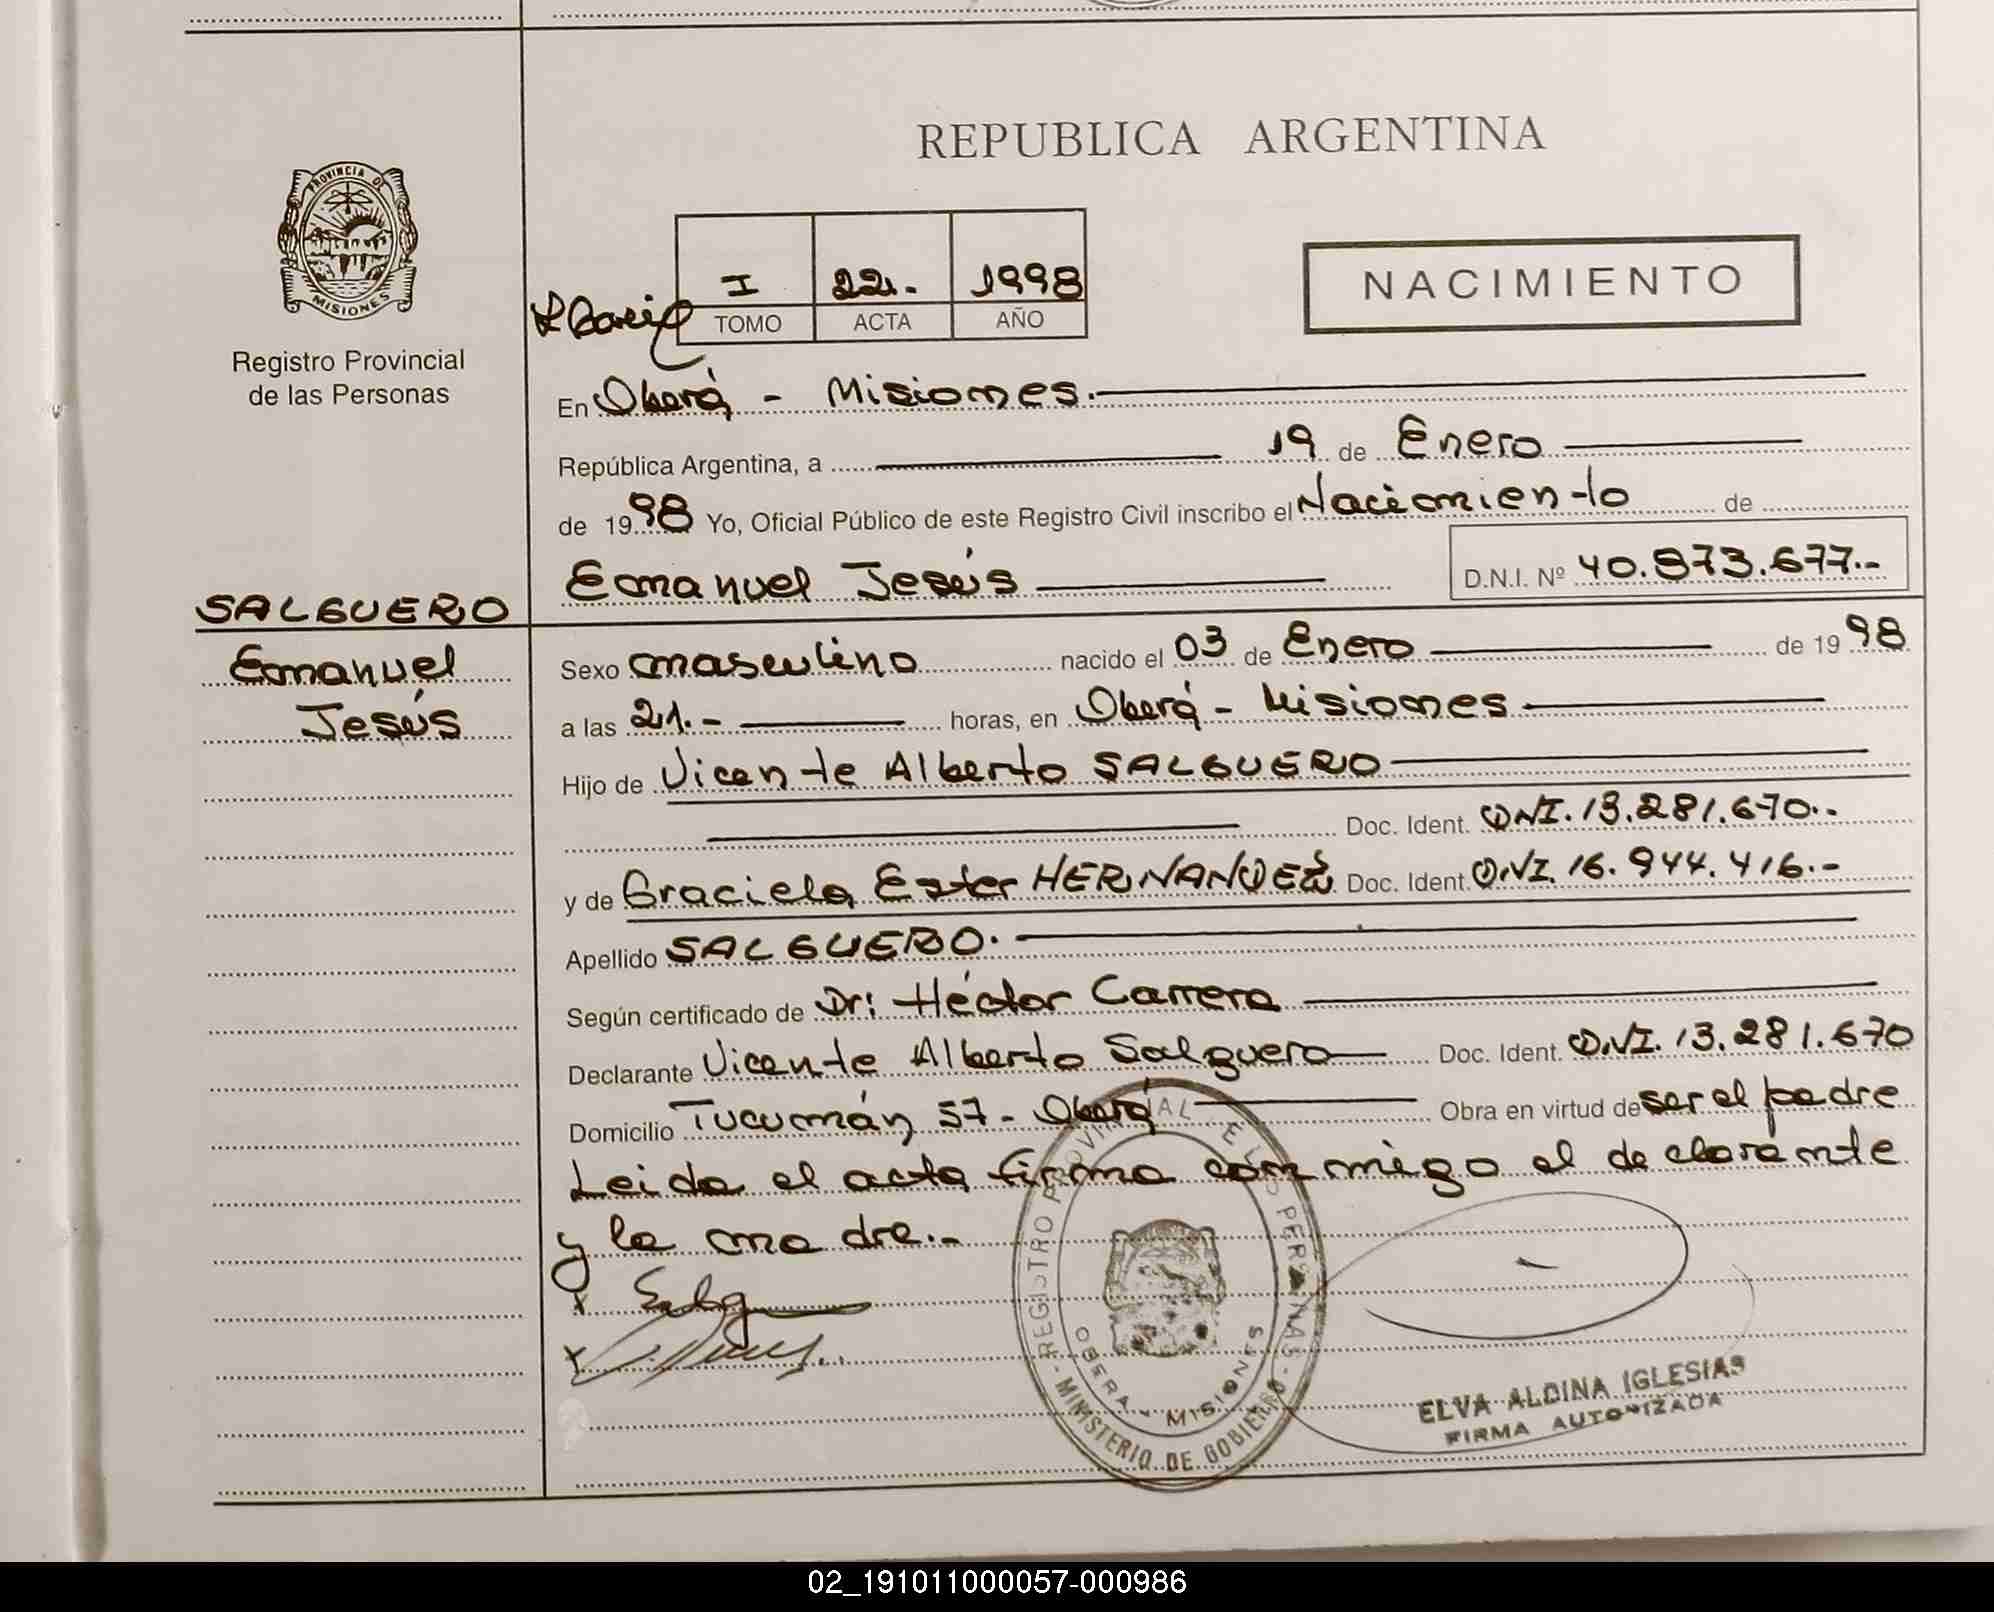 REPUBLICA ARGENTINA
PROVINCIA DE
MISIONES
Registro Provincial
de las Personas
I 221.- 1998
TOMO ACTA AÑO
NACIMIENTO
En Oberá - Misiones.
República Argentina, a 19 de Enero
de 1998 Yo, Oficial Público de este Registro Civil inscribo el Nacimiento de
Emanuel Jesús D.N.I. Nº 40.873.677.-
SALGUERO
Emanuel
Jesús
Sexo masculino nacido el 03 de Enero de 1998
a las 21.- horas, en Oberá - Misiones
Hijo de Vicente Alberto SALGUERO
Doc. Ident. DNI. 13.281.670.-
y de Graciela Ester HERNANDEZ Doc. Ident. DNI. 16.944.416.-
Apellido SALGUERO.
Según certificado de Dr: Héctor Carrera
Declarante Vicente Alberto Salguero Doc. Ident. DNI. 13.281.670
Domicilio Tucumán 57 - Oberá Obra en virtud de ser el padre
Leida el acta firma conmigo el declarante
y la madre.-
x
x
REGISTRO PROVINCIAL DE LAS PERSONAS
OBERA - MISIONES
- MINISTERIO DE GOBIERNO -
ELVA ALDINA IGLESIAS
FIRMA AUTORIZADA
02_191011000057-000986